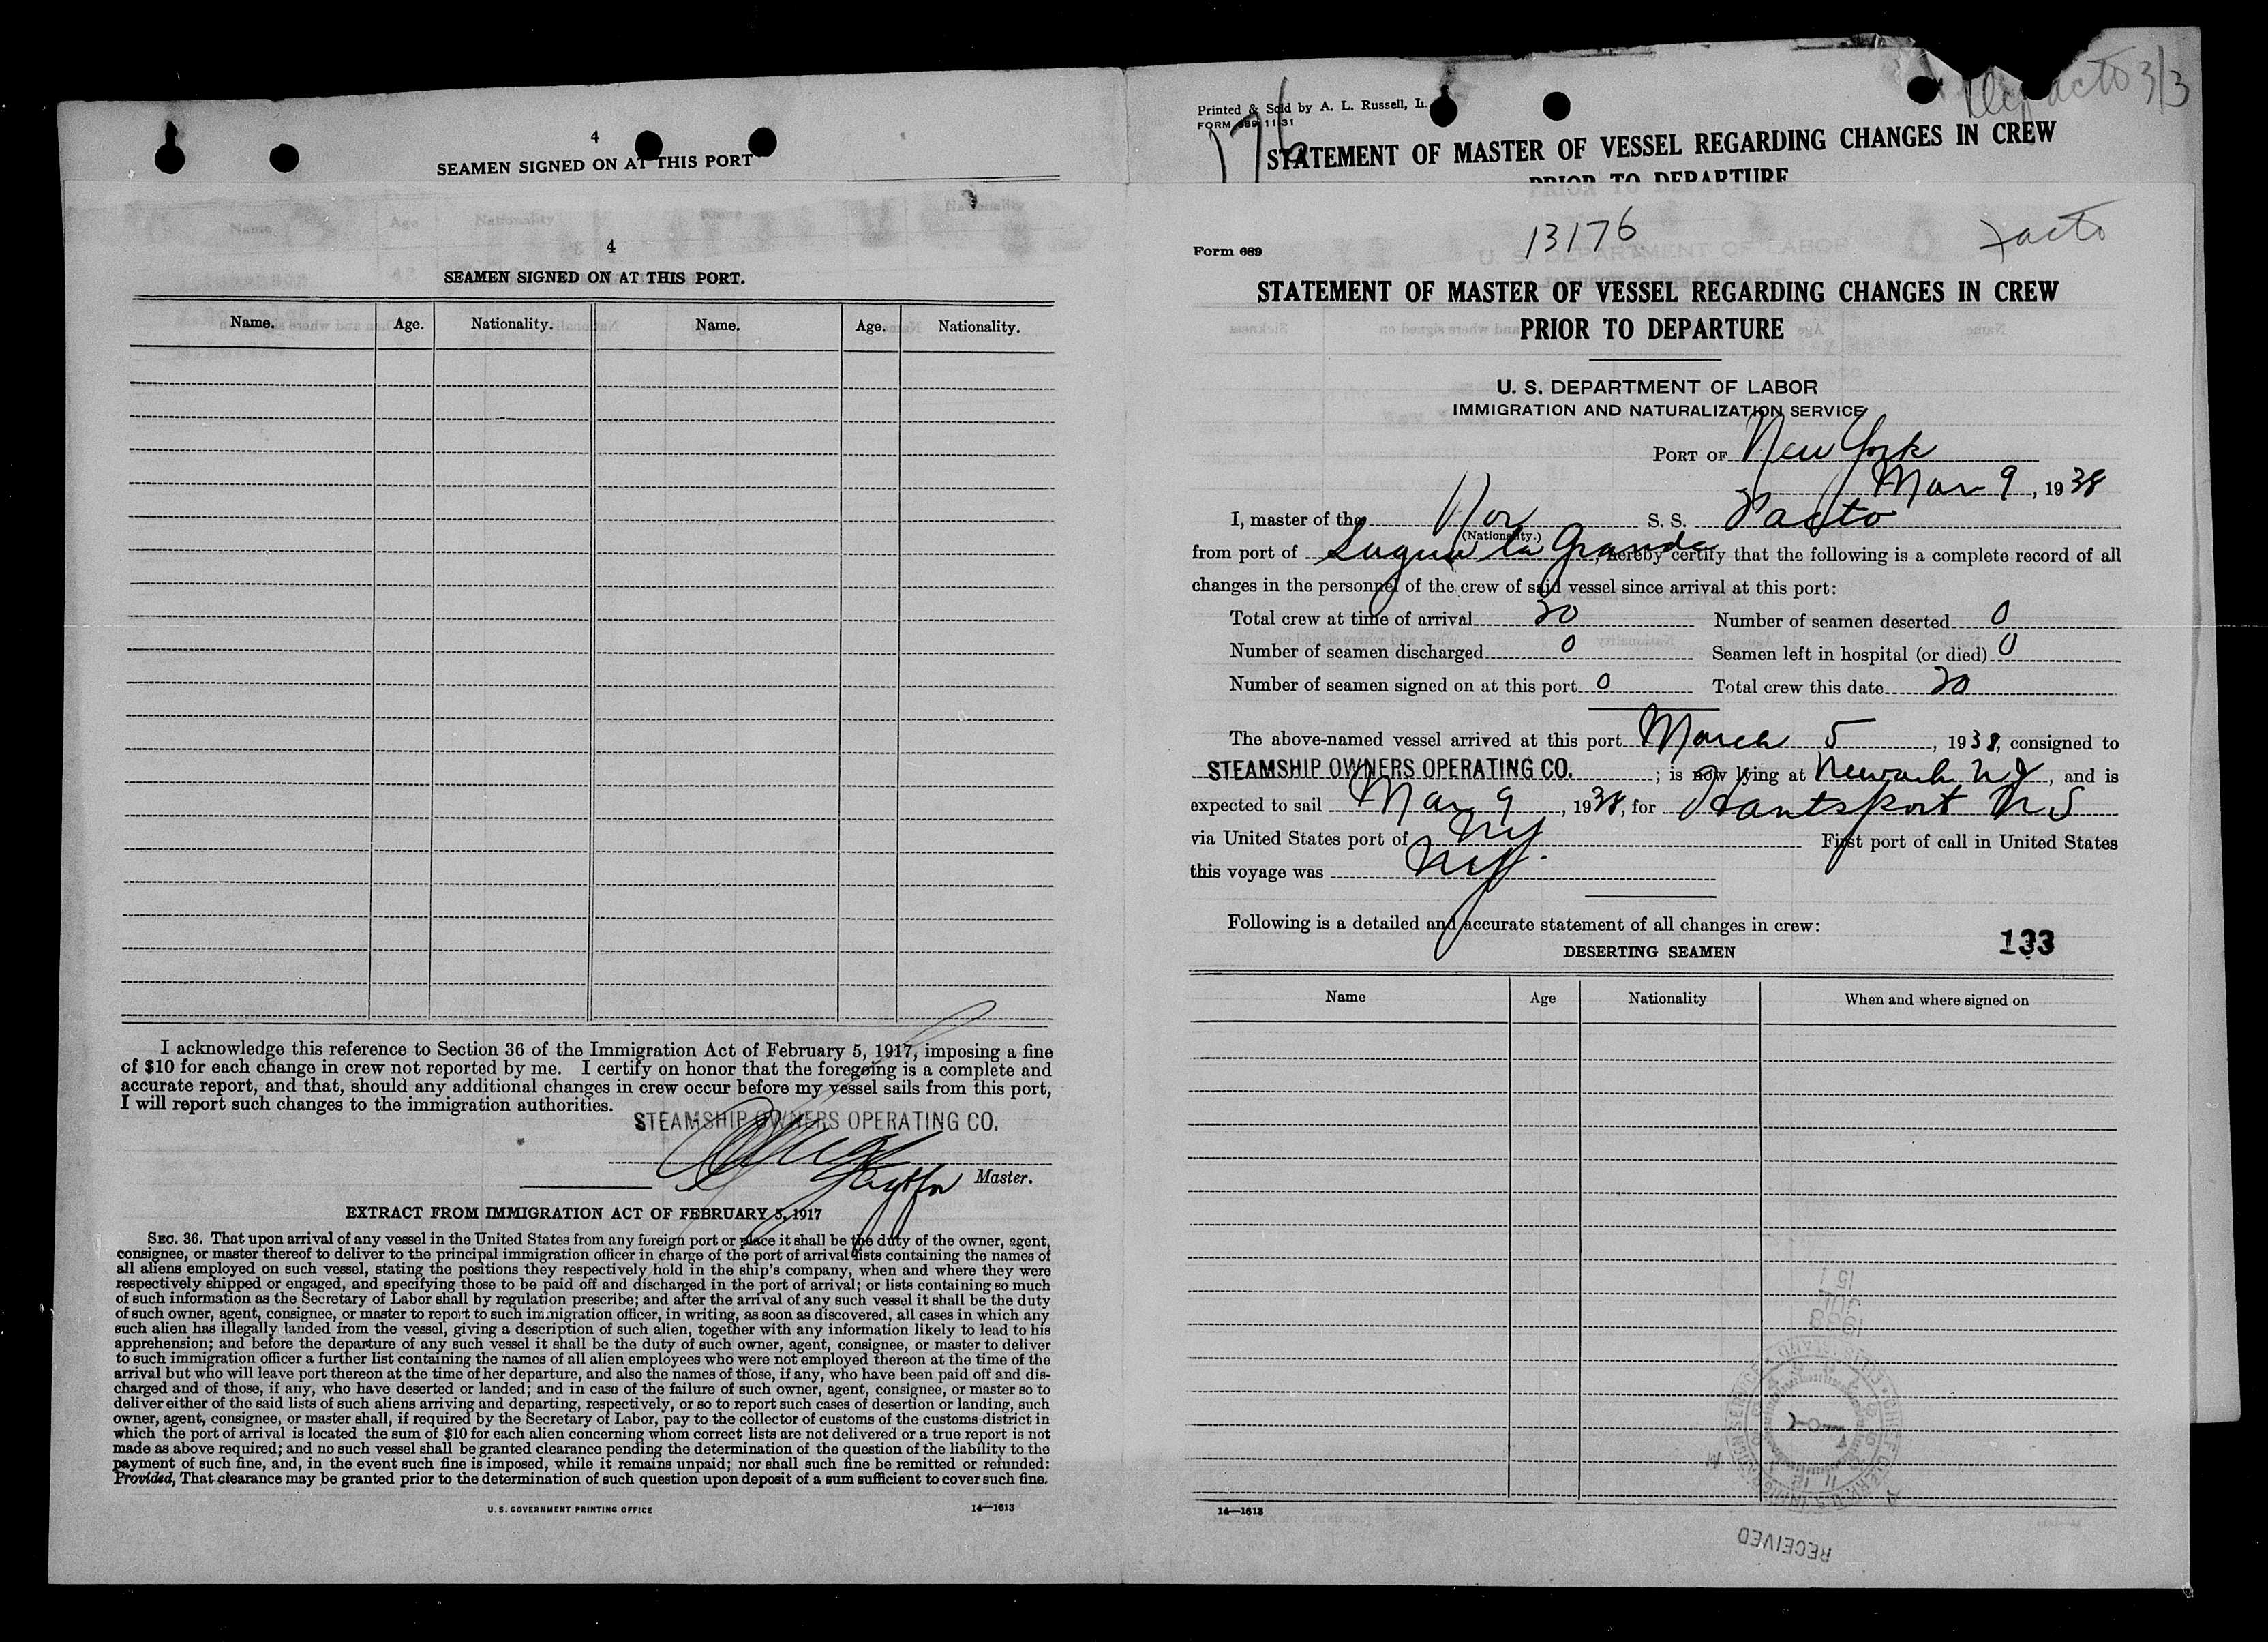 4
SEAMEN SIGNED ON AT THIS PORT
4
SEAMEN SIGNED ON AT THIS PORT.
Name. Age. Nationality. Name. Age. Nationality.
I acknowledge this reference to Section 36 of the Immigration Act of February 5, 1917, imposing a fine
of $10 for each change in crew not reported by me. I certify on honor that the foregoing is a complete and
accurate report, and that, should any additional changes in crew occur before my vessel sails from this port,
I will report such changes to the immigration authorities.
STEAMSHIP OWNERS OPERATING CO.
Master.
EXTRACT FROM IMMIGRATION ACT OF FEBRUARY 5, 1917
SEC. 36. That upon arrival of any vessel in the United States from any foreign port or place it shall be the duty of the owner, agent,
consignee, or master thereof to deliver to the principal immigration officer in charge of the port of arrival lists containing the names of
all aliens employed on such vessel, stating the positions they respectively hold in the ship's company, when and where they were
respectively shipped or engaged, and specifying those to be paid off and discharged in the port of arrival; or lists containing so much
of such information as the Secretary of Labor shall by regulation prescribe; and after the arrival of any such vessel it shall be the duty
of such owner, agent, consignee, or master to report to such immigration officer, in writing, as soon as discovered, all cases in which any
such alien has illegally landed from the vessel, giving a description of such alien, together with any information likely to lead to his
apprehension; and before the departure of any such vessel it shall be the duty of such owner, agent, consignee, or master to deliver
to such immigration officer a further list containing the names of all alien employees who were not employed thereon at the time of the
arrival but who will leave port thereon at the time of her departure, and also the names of those, if any, who have been paid off and dis-
charged and of those, if any, who have deserted or landed; and in case of the failure of such owner, agent, consignee, or master so to
deliver either of the said lists of such aliens arriving and departing, respectively, or so to report such cases of desertion or landing, such
owner, agent, consignee, or master shall, if required by the Secretary of Labor, pay to the collector of customs of the customs district in
which the port of arrival is located the sum of $10 for each alien concerning whom correct lists are not delivered or a true report is not
made as above required; and no such vessel shall be granted clearance pending the determination of the question of the liability to the
payment of such fine, and, in the event such fine is imposed, while it remains unpaid; nor shall such fine be remitted or refunded:
Provided, That clearance may be granted prior to the determination of such question upon deposit of a sum sufficient to cover such fine.
U. S. GOVERNMENT PRINTING OFFICE 14—1613
Printed & Sold by A. L. Russell,
FORM 689 11-31
3/3
STATEMENT OF MASTER OF VESSEL REGARDING CHANGES IN CREW
PRIOR TO DEPARTURE
13176
Form 689
STATEMENT OF MASTER OF VESSEL REGARDING CHANGES IN CREW
PRIOR TO DEPARTURE
U. S. DEPARTMENT OF LABOR
IMMIGRATION AND NATURALIZATION SERVICE
PORT OF New York
Mar 9, 1938
I, master of the Nor S. S. Facto
(Nationality.)
from port of Sagua la Grande, hereby certify that the following is a complete record of all
changes in the personnel of the crew of said vessel since arrival at this port:
Total crew at time of arrival 20 Number of seamen deserted 0
Number of seamen discharged 0 Seamen left in hospital (or died) 0
Number of seamen signed on at this port 0 Total crew this date 20
The above-named vessel arrived at this port March 5, 1938, consigned to
STEAMSHIP OWNERS OPERATING CO.; is now lying at Newark NJ, and is
expected to sail Mar 9, 1938, for Hantsport NS
via United States port of NY First port of call in United States
this voyage was NY.
Following is a detailed and accurate statement of all changes in crew:
DESERTING SEAMEN 133
Name Age Nationality When and where signed on
14—1613
RECEIVED